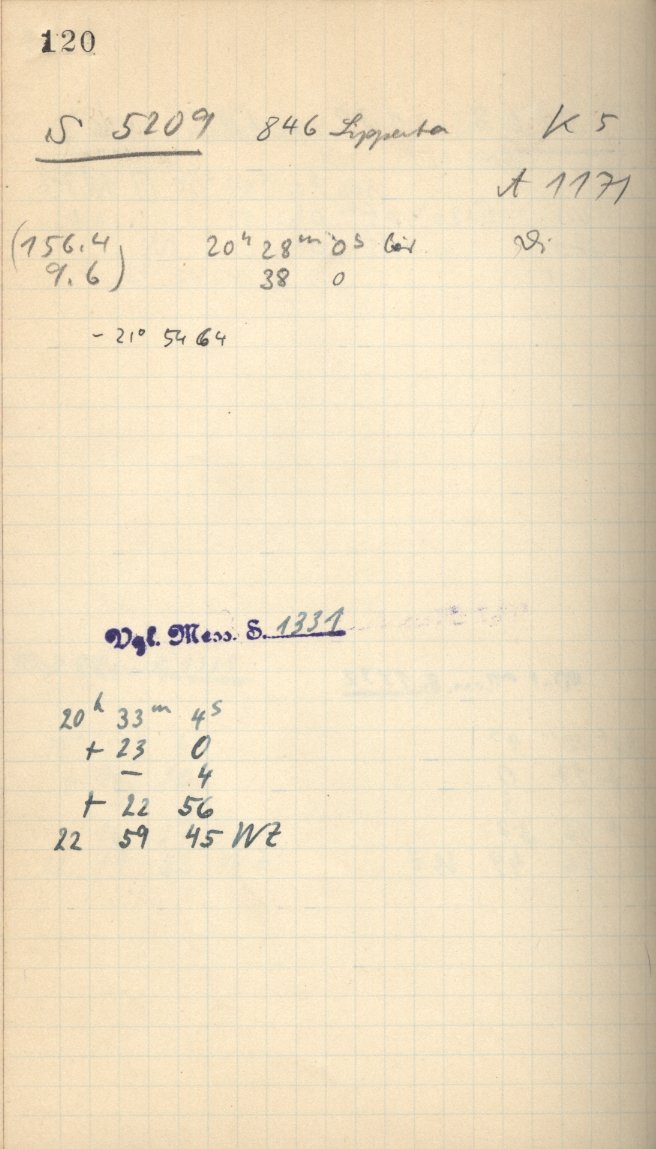 120
S 5209 846 Lipperta K 5
A 1171
(156.4 20h 28m 0s bis Di
9.6) 38 0
- 21° 54 64
Vgl. Mess. S. 1331
20h 33m 4s
+ 23 0
- 4
+ 22 56
22 59 45 WZ